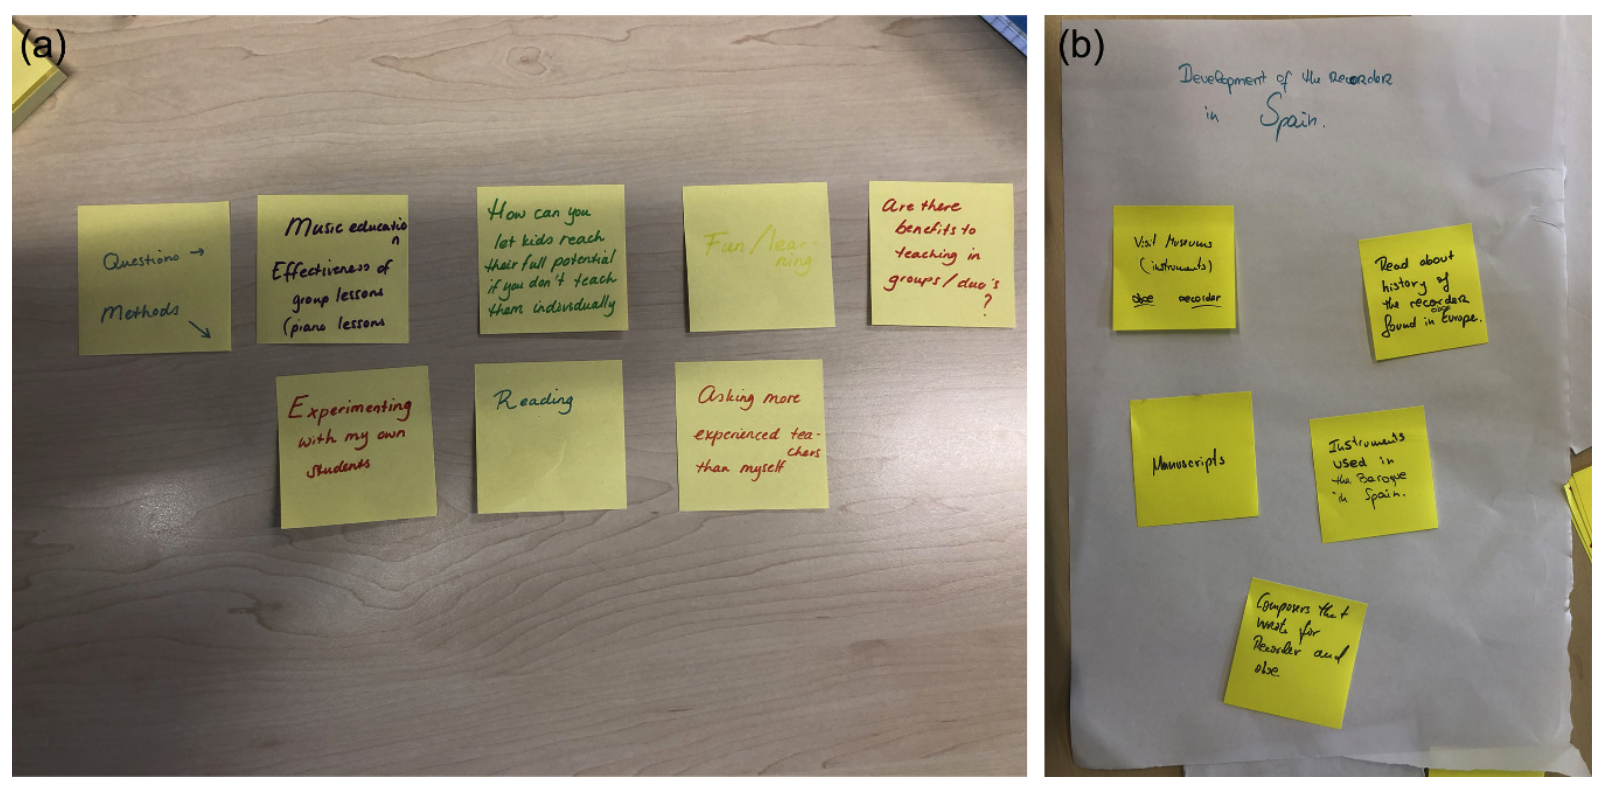 (a)
Questions →
Methods ↘
Music educatio
n
Effectiveness of
group lessons
(piano lessons
How can you
let kids reach
their full potential
if you don't teach
them individually
Fun/lear-
ning
Are there
benefits to
teaching in
groups/duo's
?
Experimenting
with my own
students
Reading
Asking more
experienced tea-
chers
than myself
(b)
Development of the Recorder
in Spain.
Visit Museums
(instruments)
oboe recorder
Read about
history of
the recorder
oboe
found in Europe.
Manuscripts
Instruments
used in
the Baroque
in Spain.
Composers that
wrote for
Recorder and
oboe